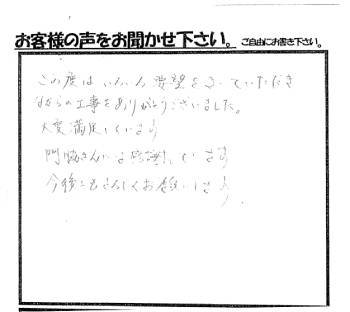 お客様の声をお聞かせ下さい。ご自由にお書き下さい。
この度はいろいろ要望をきいていただき
ながらの工事をありがとうございました。
大変満足しています
門脇さんには感謝しています
今後ともよろしくお願いします